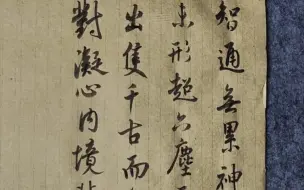 智通無累神
未形超六塵
出隻千古而
對凝心内境